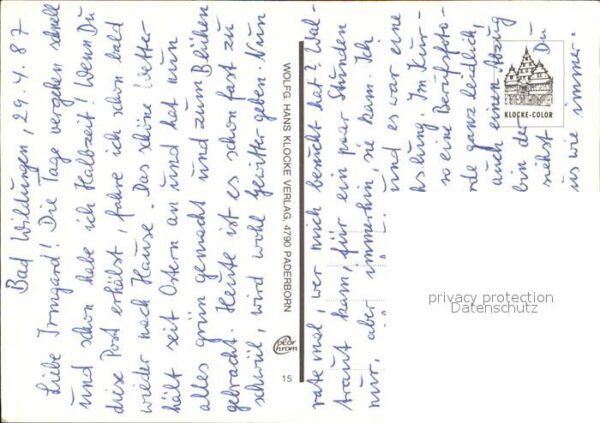 Bad Wildungen, 29.4.87
Liebe Irmgard! Die Tage vergehen schnell
und schon habe ich Halbzeit! Wenn Du
diese Post erhälst, fahre ich schon bald
wieder nach Hause. Das schöne Wetter
hält seit Ostern an und hat nun
alles grün gemacht und zum Blühen
gebracht. Heute ist es schon fast zu
schwül, wird wohl Gewitter geben. Nun
WOLFG. HANS KLOCKE VERLAG, 4790 PADERBORN
color
chrom
15
rate mal, wer mich besucht hat? Wal-
traut kam, für ein paar Stunden
nur, aber immerhin, sie kam. Ich
und es war eine
hslung. Im Kur-
so eine Berufsfoto-
rde ganz leidlich,
auch einen Abzug
bin de
siehst Du
us wie immer.
KLOCKE-COLOR
privacy protection
Datenschutz